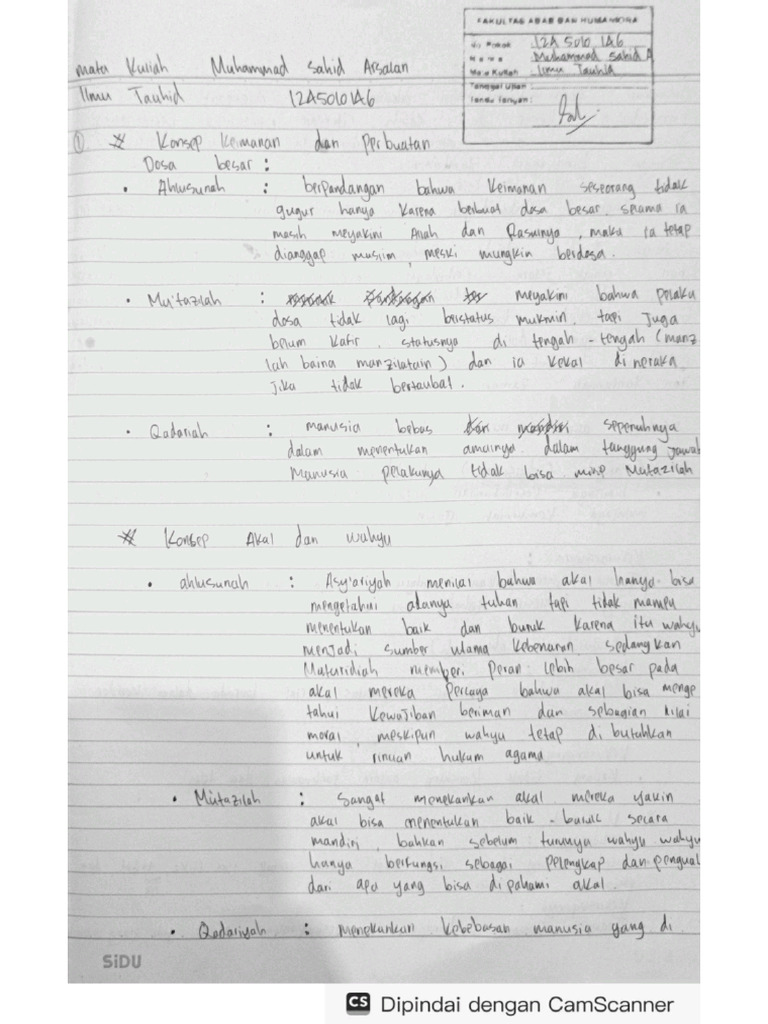 FAKULTAS ADAB DAN HUMANIORA
No Pokok : 12A5010146
Nama : Muhammad Sahid A
Mata Kuliah : Ilmu Tauhid
Tanggal Ujian :
Tanda Tangan :
Mata Kuliah Muhammad Sahid Arsalan
Ilmu Tauhid 12A5010146
① # Konsep Keimanan dan Perbuatan
Dosa besar :
• Ahlusunah : berpandangan bahwa Keimanan seseorang tidak
gugur hanya karena berbuat dosa besar, selama ia
masih meyakini Allah dan Rasulnya, maka ia tetap
dianggap muslim, meski mungkin berdosa.
• Mu'tazilah : meyakini bahwa pelaku
dosa tidak lagi berstatus mukmin, tapi Juga
belum kafir, statusnya di tengah-tengah (manz
lah baina manzilatain) dan ia kekal dineraka
jika tidak bertaubat.
• Qadariah : manusia bebas sepenuhnya
dalam menentukan amalnya dalam tanggung jawab
Manusia pelakunya tidak bisa Mutazilah
# Konsep Akal dan wahyu
• ahlusunah : Asy'ariyah menilai bahwa akal hanya bisa
mengetahui adanya tuhan tapi tidak mampu
menentukan baik dan buruk karena itu wahyu
menjadi sumber utama kebenaran, sedangkan
Maturidiah memberi Peran lebih besar pada
akal mereka Percaya bahwa akal bisa menge
tahui kewajiban beriman dan sebagian nilai
moral, meskipun wahyu tetap dibutuhkan
untuk rincian hukum agama
• Mutazilah : Sangat menekankan akal mereka yakin
akal bisa menentukan baik-buruk secara
mandiri, bahkan sebelum turunnya wahyu wahyu
hanya berfungsi sebagai pelengkap dan penguat
dari apa yang bisa dipahami akal.
• Qadariyah : menekankan kebebasan manusia yang di
SiDU
CS Dipindai dengan CamScanner